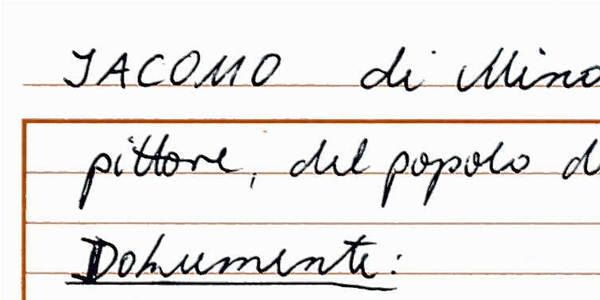 JACOMO di Mino
pittore, del popolo d
Dokumente: